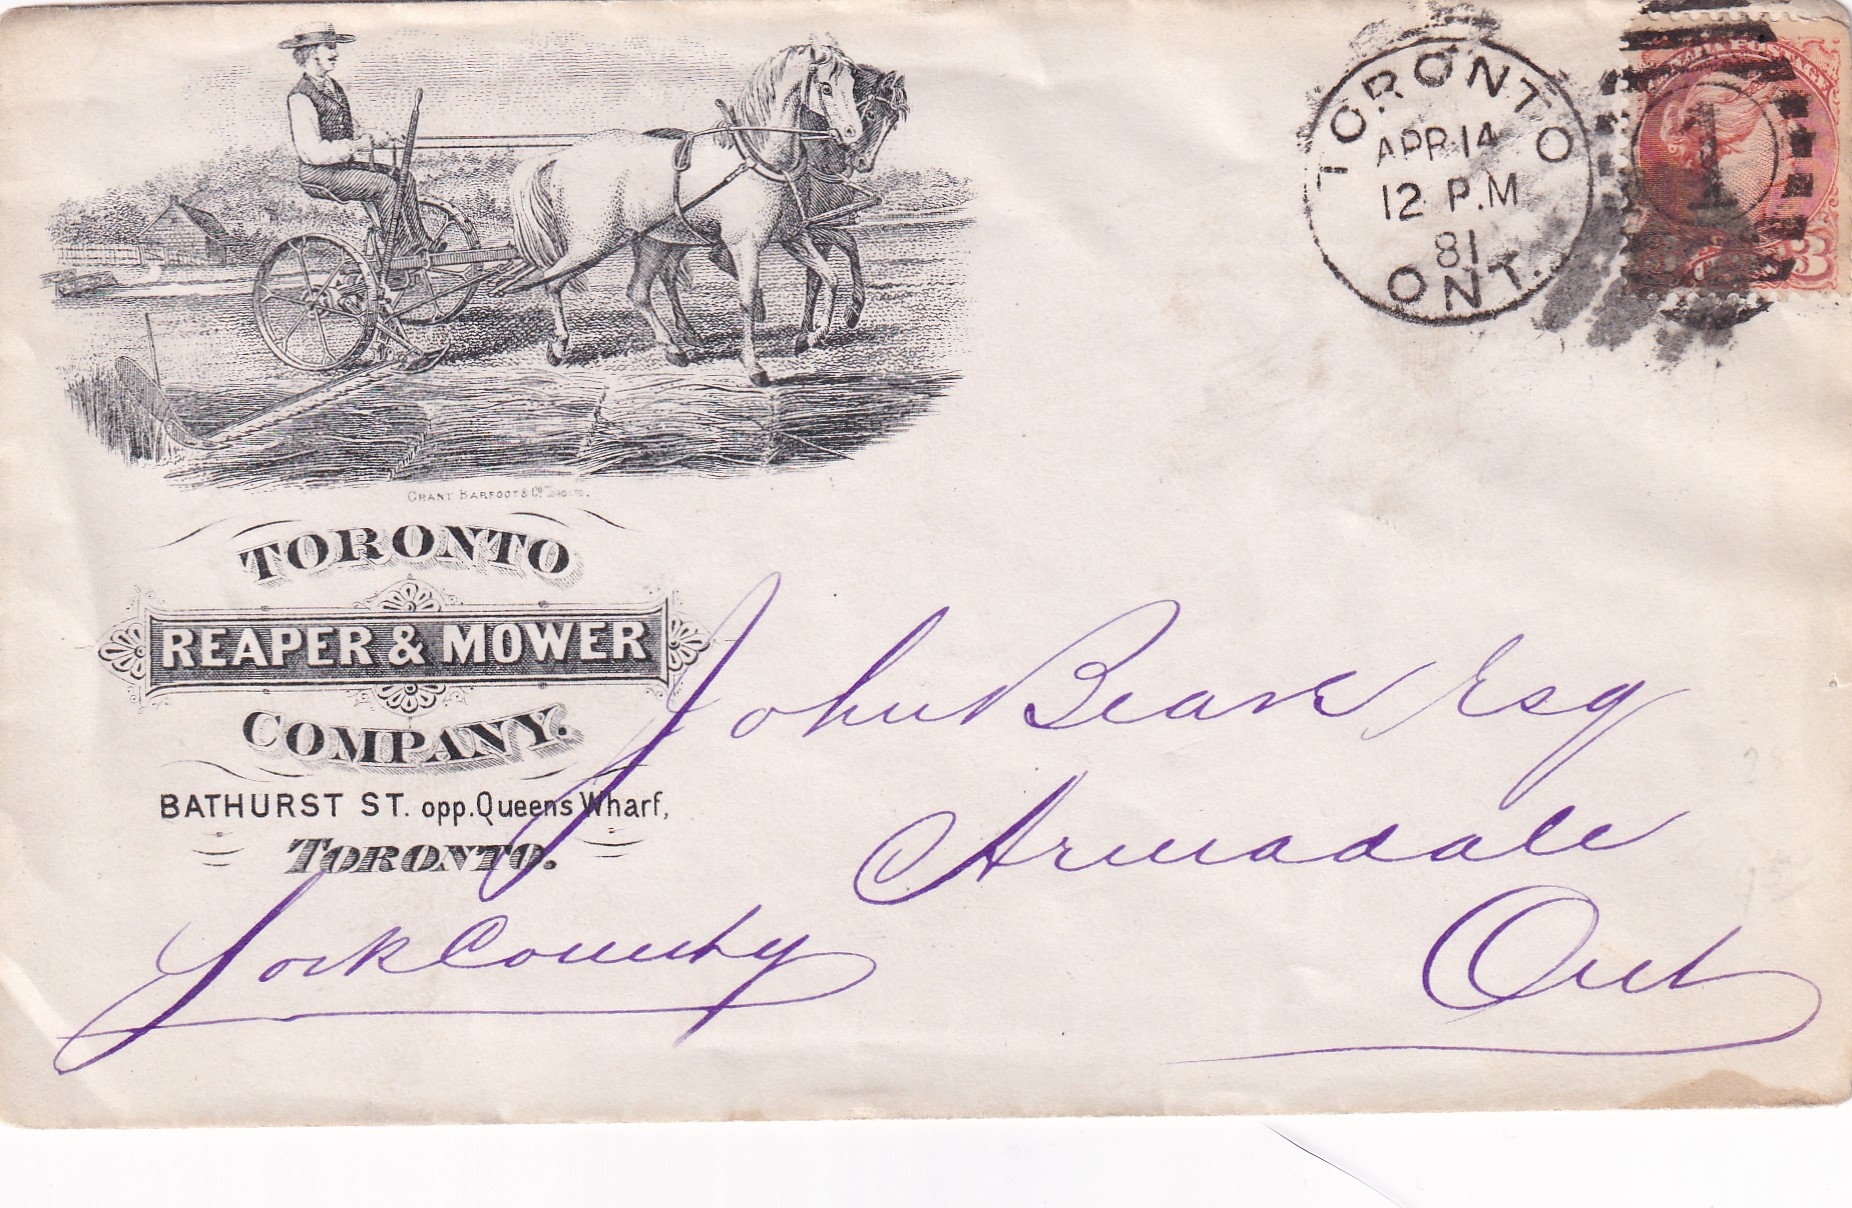 TORONTO
APR 14
12 P.M
81
ONT.
1
3
GRANT BARFOOT & Co TORONTO.
TORONTO
REAPER & MOWER
COMPANY.
BATHURST ST. opp. Queens Wharf,
TORONTO.
John Beare Esq
Armadale
York County
Ont